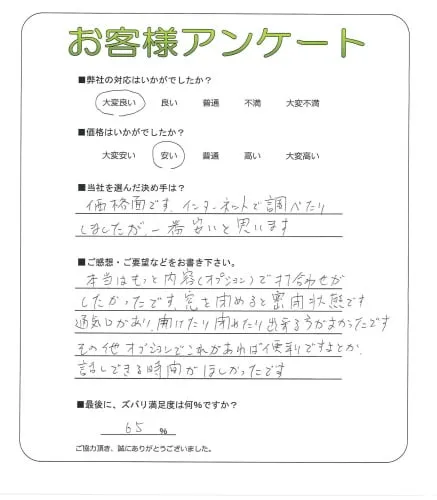 お客様アンケート
■弊社の対応はいかがでしたか?
大変良い 良い 普通 不満 大変不満
■価格はいかがでしたか?
大変安い 安い 普通 高い 大変高い
■当社を選んだ決め手は?
価格面です、インターネットで調べたり
しましたが、一番安いと思います
■ご感想・ご要望などをお書き下さい。
本当はもっと内容(オプション)で打合わせが
したかったです、窓を閉めると密閉状態です
通気口があり、開けたり閉めたり出来る方がよかったです
その他オプションでこれがあれば便利ですよとか、
話しできる時間がほしかったです
■最後に、ズバリ満足度は何%ですか?
65 %
ご協力頂き、誠にありがとうございました。